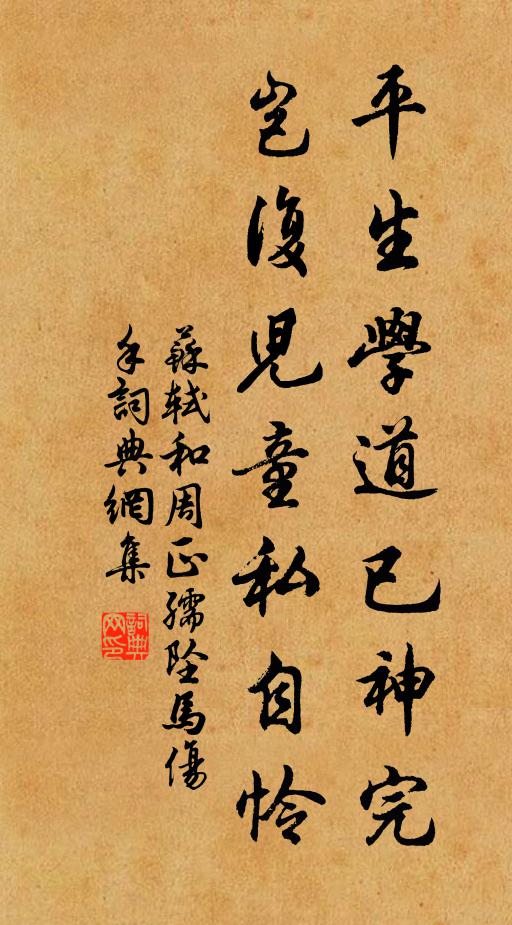 平生學道已神完
豈復兒童私自怜
蘇軾和周正孺墜馬傷
手詞典網集
詞典
网印